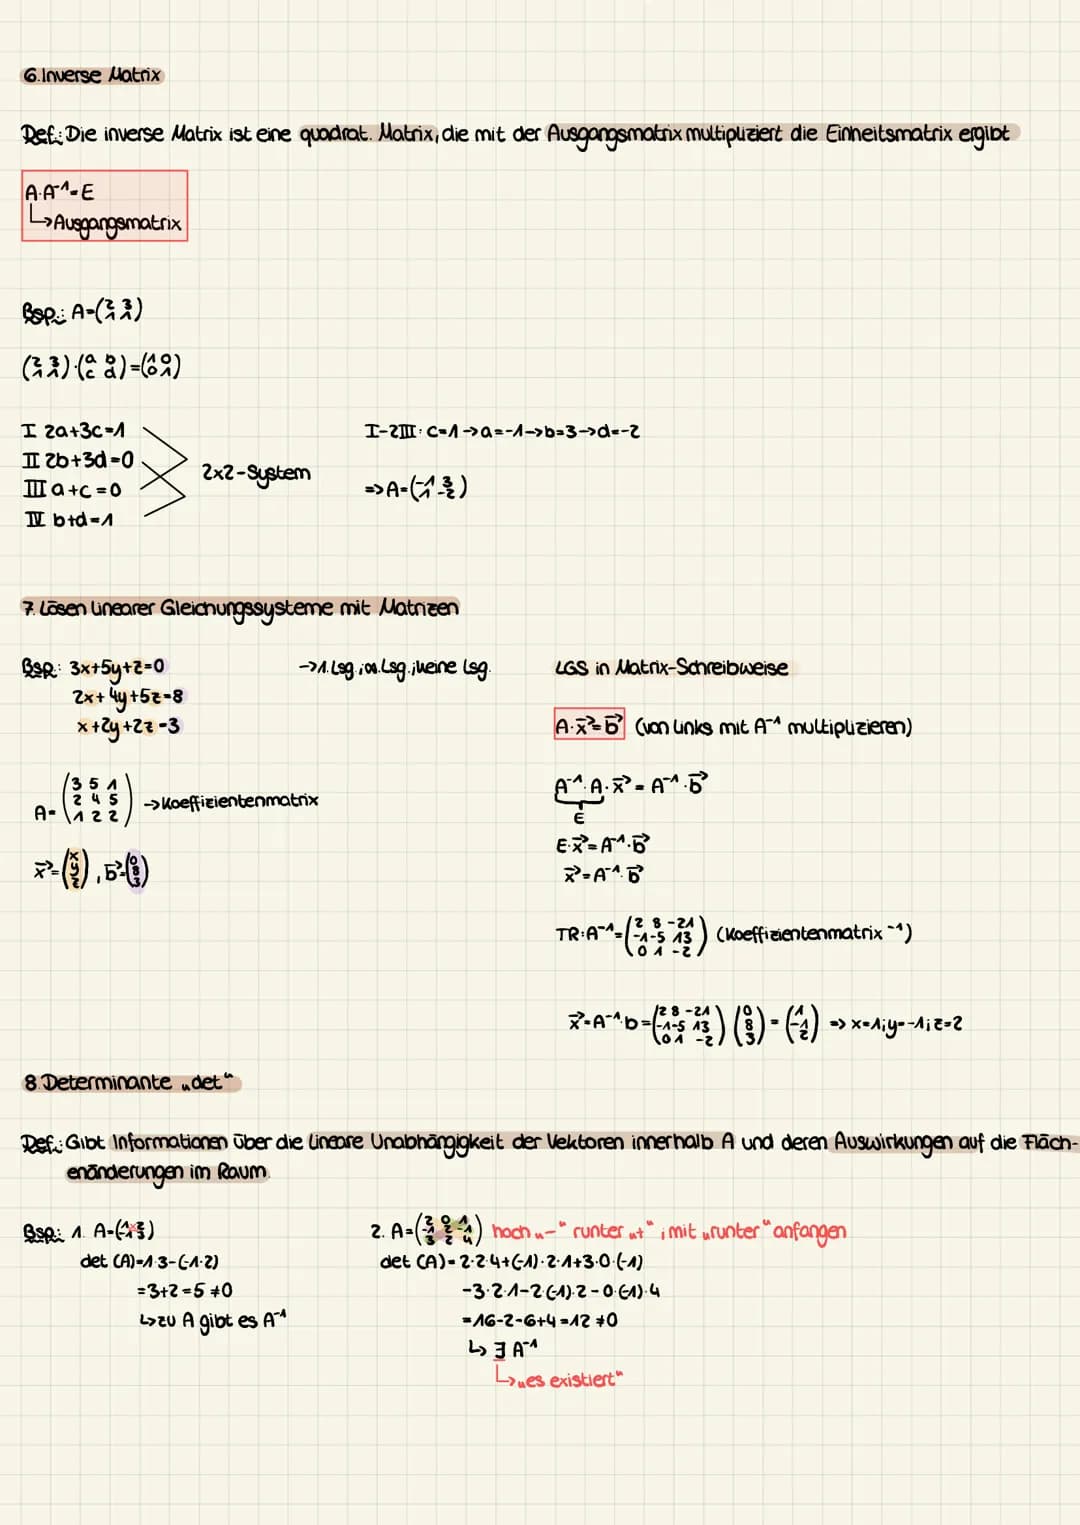 6. Inverse Matrix
Def.: Die inverse Matrix ist eine quadrat. Matrix, die mit der Ausgangsmatrix multipliziert die Einheitsmatrix ergibt
A·A⁻¹=E
↳Ausgangsmatrix
Bsp.: A=(2 3 / 1 1)
(2 3 / 1 1)·(a b / c d)=(1 0 / 0 1)
I 2a+3c=1
II 2b+3d=0
III a+c=0
IV b+d=1
2x2-System
I-2III: c=1→a=-1→b=3→d=-2
=>A=(-1 3 / 1 -2)
7. Lösen linearer Gleichungssysteme mit Matrizen
Bsp.: 3x+5y+z=0
2x+4y+5z=8
x+2y+2z=3
→1.Lsg.;∞.Lsg.;keine Lsg.
A=(3 5 1 / 2 4 5 / 1 2 2) →Koeffizientenmatrix
x⃗=(x / y / z), b⃗=(0 / 8 / 3)
LGS in Matrix-Schreibweise
A·x⃗=b⃗ (von links mit A⁻¹ multiplizieren)
A⁻¹·A·x⃗=A⁻¹·b⃗
E
E·x⃗=A⁻¹·b⃗
x⃗=A⁻¹·b⃗
TR:A⁻¹=(2 8 -21 / -1 -5 13 / 0 1 -2) (Koeffizientenmatrix⁻¹)
x⃗=A⁻¹·b=(2 8 -21 / -1 -5 13 / 0 1 -2) (0 / 8 / 3)=(1 / -1 / 2) => x=1;y=-1;z=2
8. Determinante „det“
Def.: Gibt Informationen über die lineare Unabhängigkeit der Vektoren innerhalb A und deren Auswirkungen auf die Fläch-
enänderungen im Raum.
Bsp.: 1. A=(1 2 / -1 3)
det (A)=1·3-(-1·2)
=3+2=5≠0
↳zu A gibt es A⁻¹
2. A=(2 0 1 / -1 2 -1 / 3 2 4) hoch „-“ runter „+“; mit „runter“ anfangen
det (A)=2·2·4+(-1)·2·1+3·0·(-1)
-3·2·1-2·(-1)·2-0·(-1)·4
=16-2-6+4=12≠0
↳∃ A⁻¹
↳„es existiert“